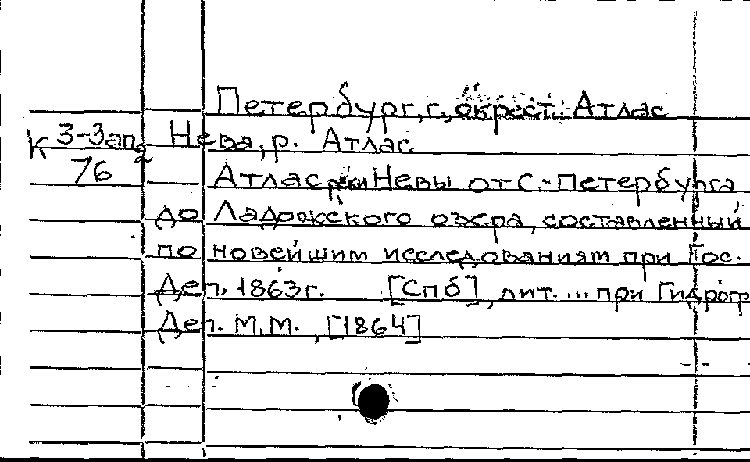 Петербург, г., окрест. Атлас
К 3-Зап 2
76
Нева, р. Атлас
Атлас реки Невы от С.-Петербурга
до Ладожского озера, составленный
по новейшим исследованиям при Гос.
Деп. 1863 г. [Спб], лит. ... при Гидрог
Деп. М.М., [1864]